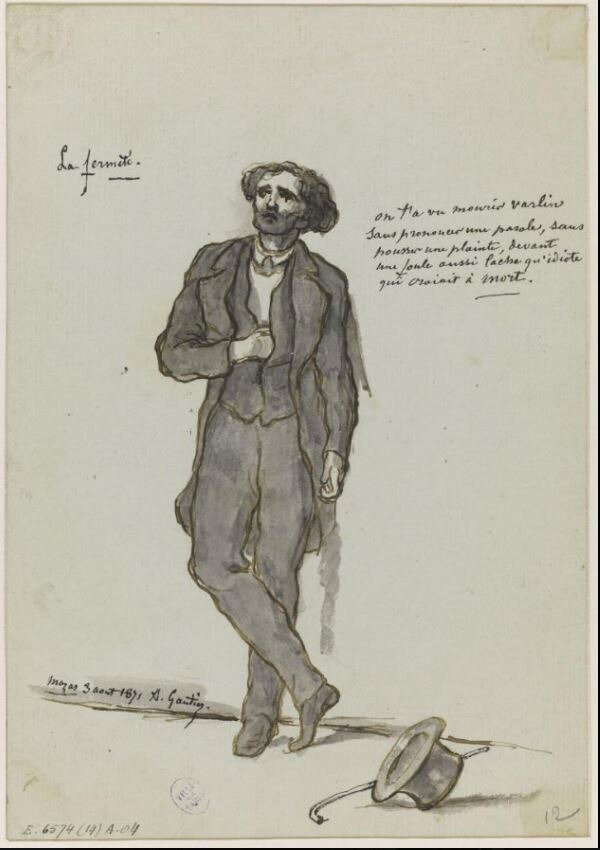 La fermeté.
on t'a vu mourir varlin
sans prononcer une parole, sans
pousser une plainte, devant
une foule aussi lache qu'idiote
qui criait à mort.
mazas 3 aout 1871 A. Gautier.
E. 6574 (14) A.04
12